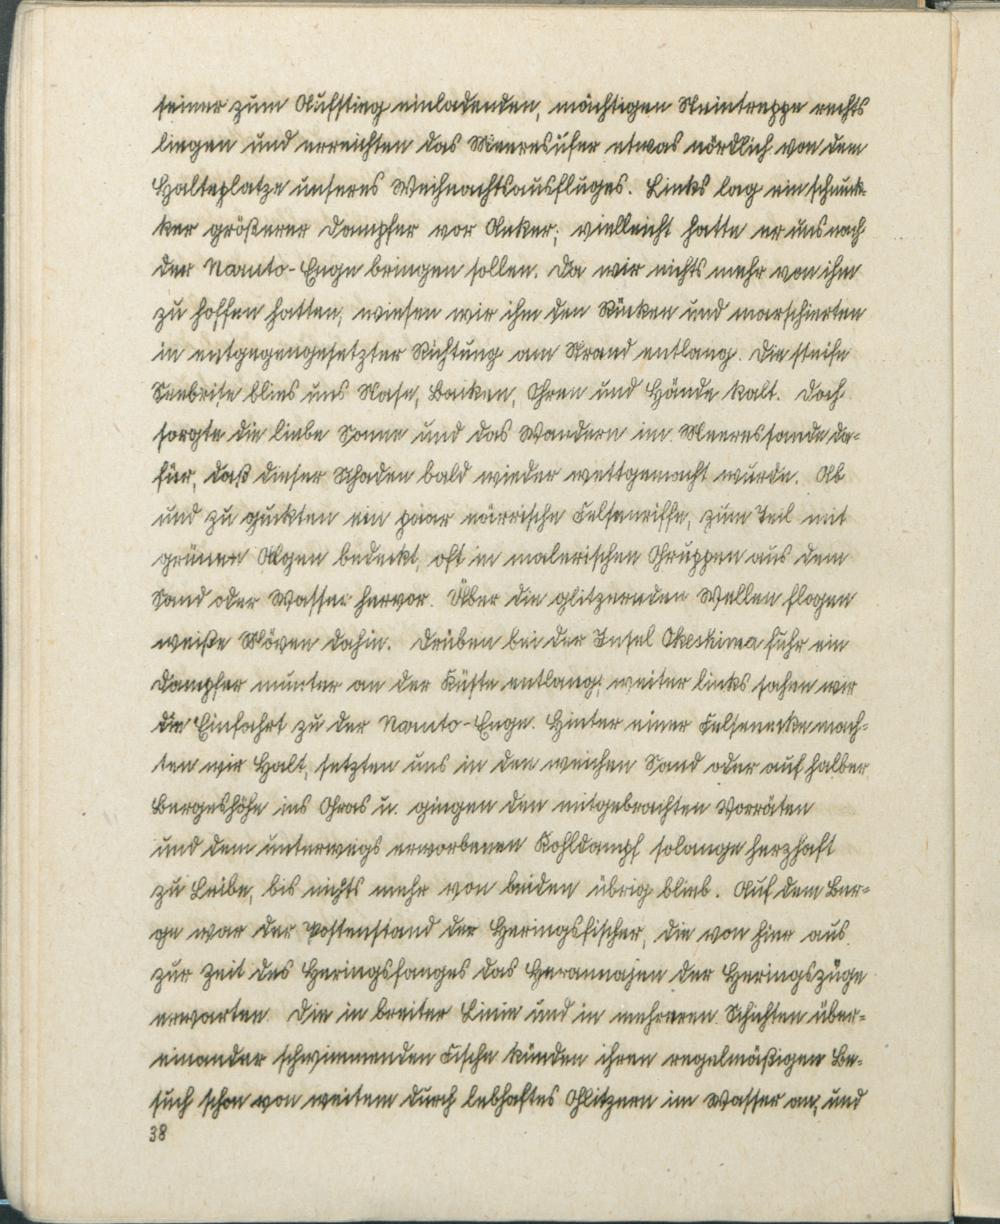 seiner zum Aufstieg einladenden, mächtigen Steintreppe rechts
liegen und erreichten das Meeresufer etwas nördlich von dem
Halteplatze unseres Weihnachtsausfluges. Links lag ein schmuk-
ker größerer Dampfer vor Anker; vielleicht hatte er uns nach
der Naruto-Enge bringen sollen. Da wir nichts mehr von ihm
zu hoffen hatten, wiesen wir ihm den Rücken und marschierten
in entgegengesetzter Richtung am Strand entlang. Die steife
Seebrise blies uns Nase, Backen, Ohren und Hände kalt. Doch
sorgte die liebe Sonne und das Wandern im Meeressande da-
für, daß dieser Schaden bald wieder wettgemacht wurde. Ab
und zu guckten ein paar närrische Felsenriffe, zum Teil mit
grünen Algen bedeckt, oft in malerischen Gruppen aus dem
Sand oder Wasser hervor. Über die glitzernden Wellen flogen
weiße Möven dahin. Drüben bei der Insel Okeskima fuhr ein
Dampfer munter an der Küste entlang; weiter links sahen wir
die Einfahrt zu der Naruto-Enge. Hinter einer Felsenecke mach-
ten wir Halt, setzten uns in den weichen Sand oder auf halber
Bergeshöhe ins Gras u. gingen den mitgebrachten Vorräten
und dem unterwegs erworbenen Kohldampf solange herzhaft
zu Leibe, bis nichts mehr von beiden übrig blieb. Auf dem Ber-
ge war der Postenstand der Heringsfischer, die von hier aus
zur Zeit des Heringsfanges das Herannahen der Heringszüge
erwarten. Die in breiter Linie und in mehreren Schichten über-
einander schwimmenden Fische künden ihren regelmäßigen Be-
such schon von weitem durch lebhaftes Glitzern im Wasser an, und
38